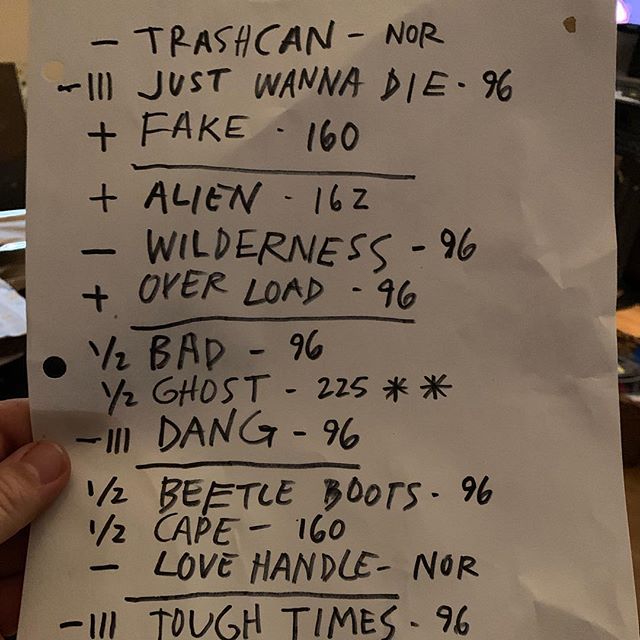 - TRASHCAN - NOR
-||| JUST WANNA DIE - 96
+ FAKE - 160
+ ALIEN - 162
- WILDERNESS - 96
+ OVER LOAD - 96
1/2 BAD - 96
1/2 GHOST - 225 * *
-||| DANG - 96
1/2 BEETLE BOOTS - 96
1/2 CAPE - 160
- LOVE HANDLE - NOR
-||| TOUGH TIMES - 96